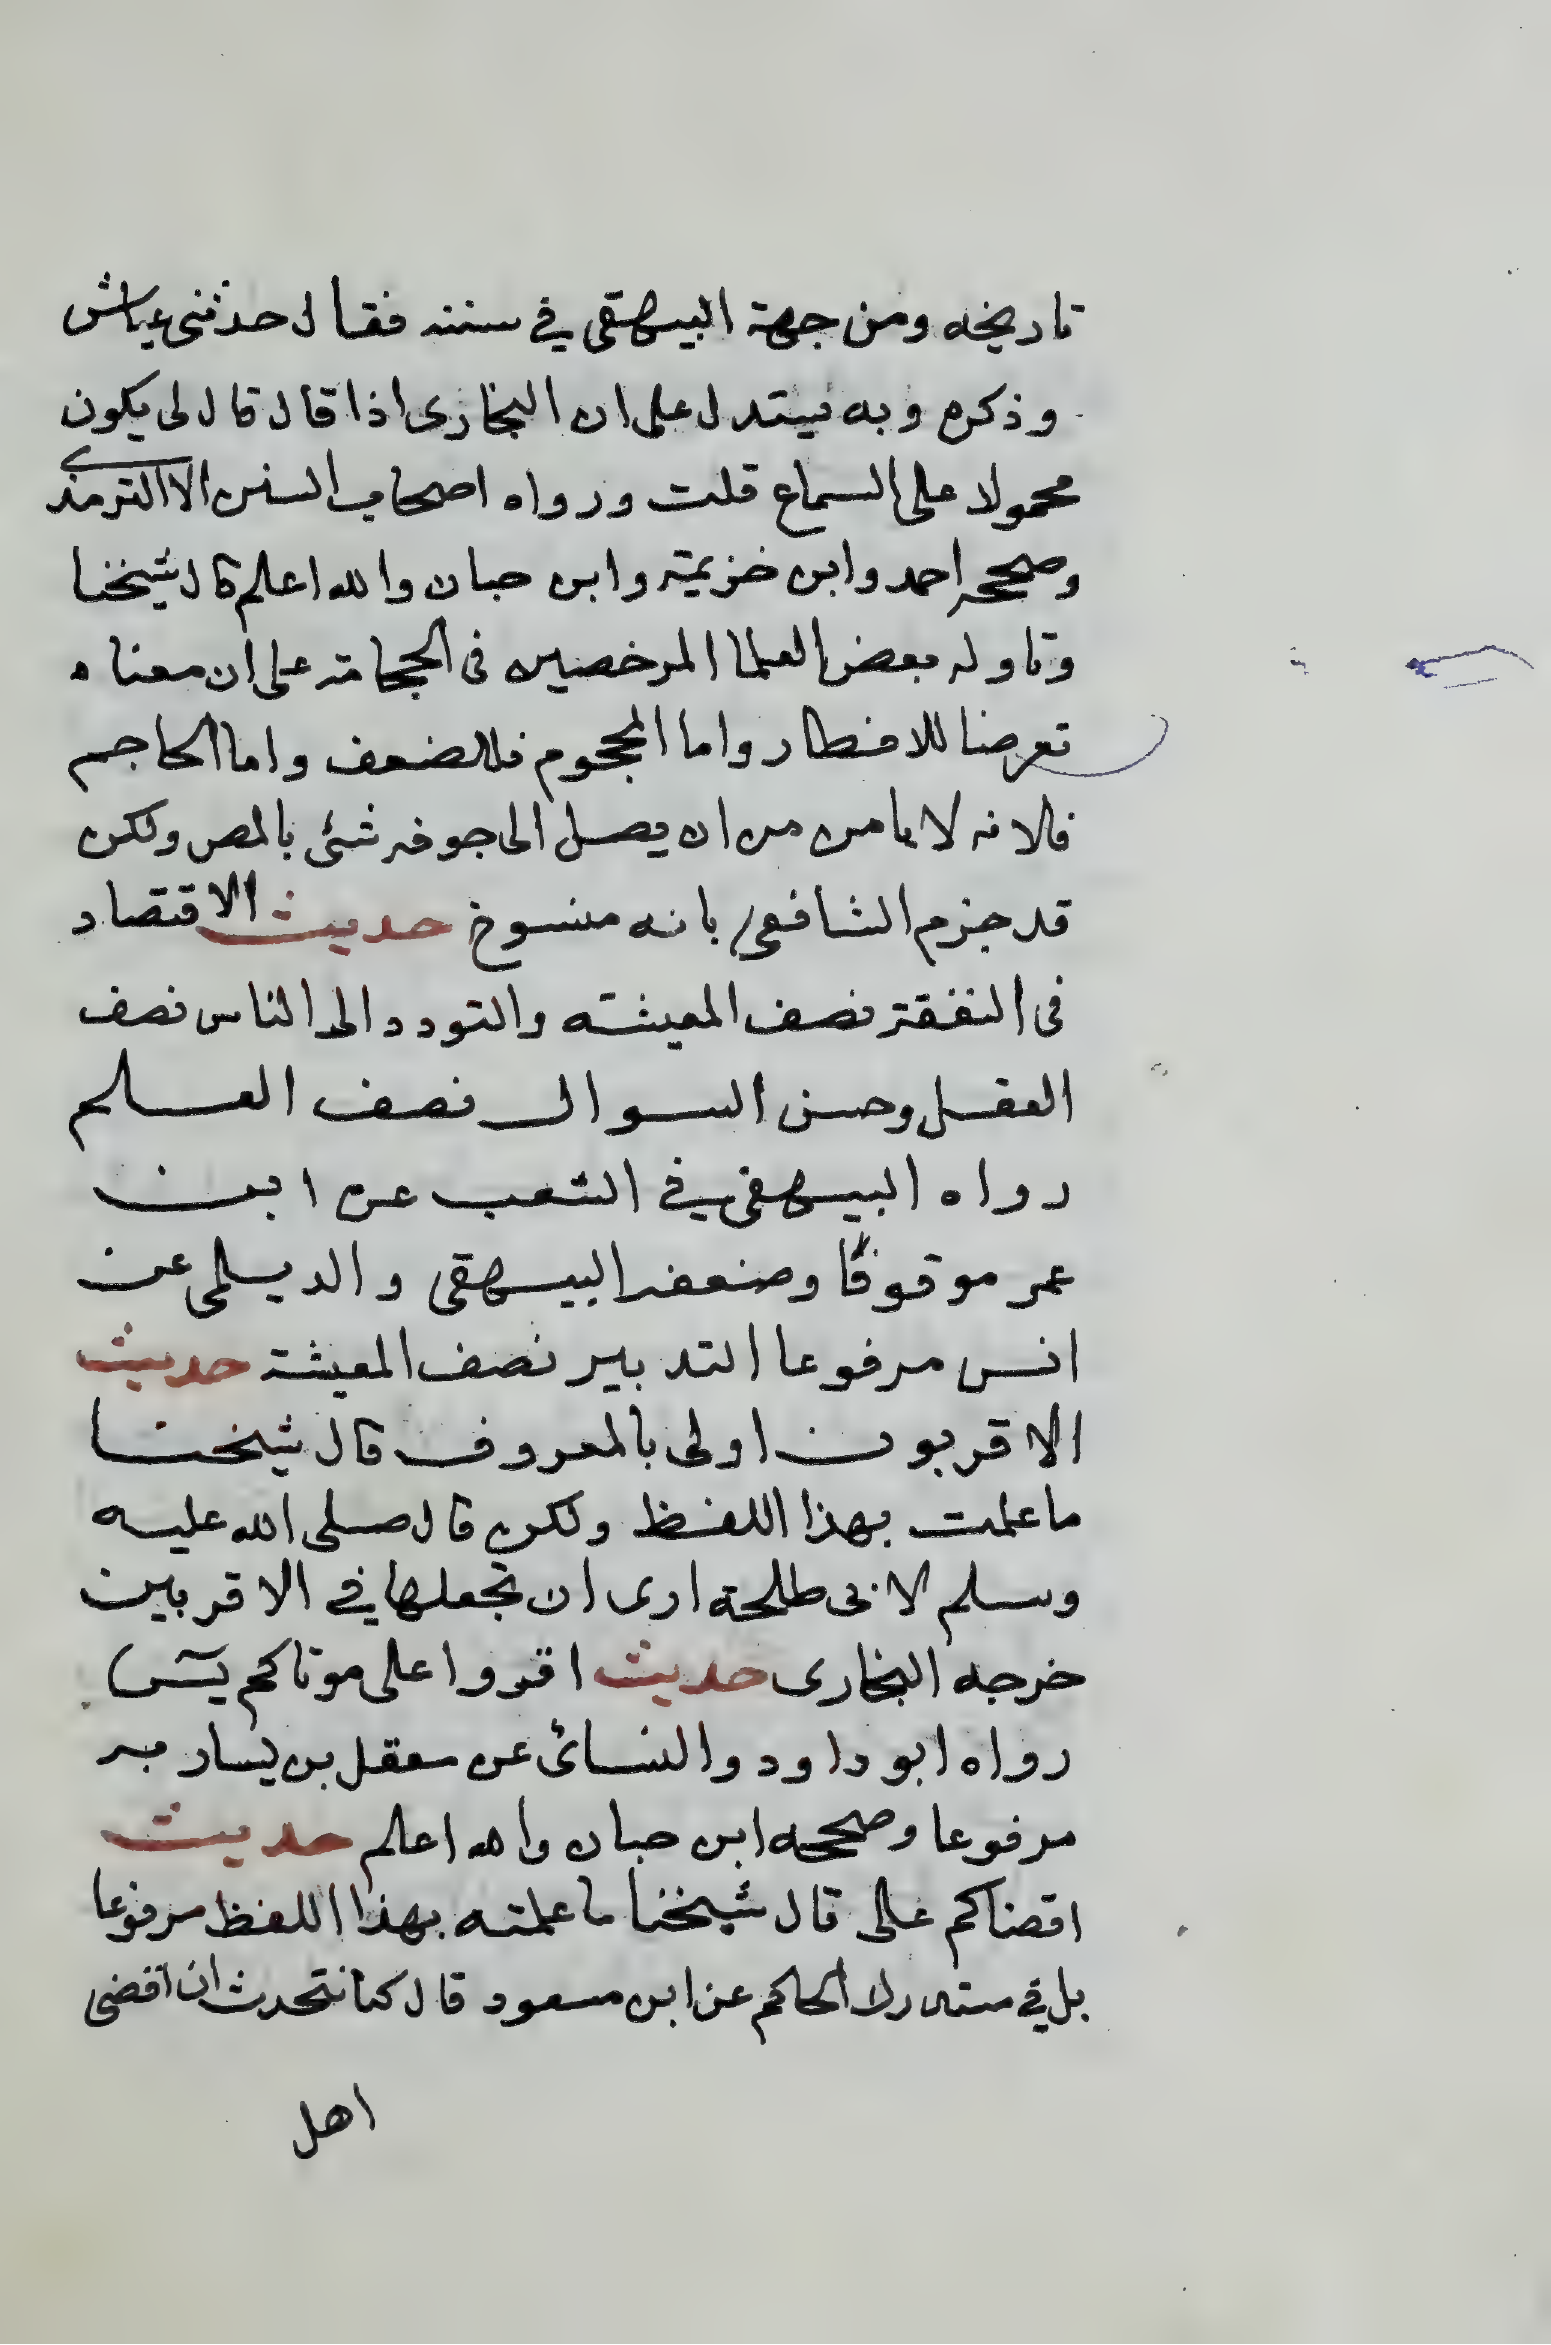 تاريخه ومن جهة البيهقي في سننه فقال حدثني عياش
وذكره وبه يستدل على ان البخارى اذا قال قال لى يكون
محمولا على السماع قلت ورواه اصحاب السنن الا الترمذى
وصححه احمد وابن خزيمة وابن حبان والله اعلم قال شيخنا
وتاوله بعض العلما المرخصين فى الحجامة على ان معناه
تعرضا للافطار واما المحجوم فللضعف واما الحاجم
فلانه لا يامن من ان يصل الى جوفه شئى بالمص ولكن
قد جزم الشافعى بانه منسوخ حديث الاقتصاد
فى النفقة نصف المعيشته والتودد الى الناس نصف
العقل وحسن السوال نصف العلم
رواه البيهقى في الشعب عن ابن
عمر موقوفًا وضعفه البيهقى والديلمى عن
انس مرفوعا التدبير نصف المعيشة حديث
الاقربون اولى بالمعروف قال شيخنا
ما علمت بهذا اللفظ ولكن قال صلى الله عليه
وسلم لابى طلحة ارى ان تجعلها في الاقربين
خرجه البخارى حديث اقروا على موتاكم يسٓ
رواه ابو داود والنسائ عن معقل بن يسار به
مرفوعا وصححه ابن حبان والله اعلم حديث
اقضاكم على قال شيخنا ما علمته بهذا اللفظ مرفوعا
بل في مستدرك الحاكم عن ابن مسعود قال كنا نتحدث ان اقضى
اهل